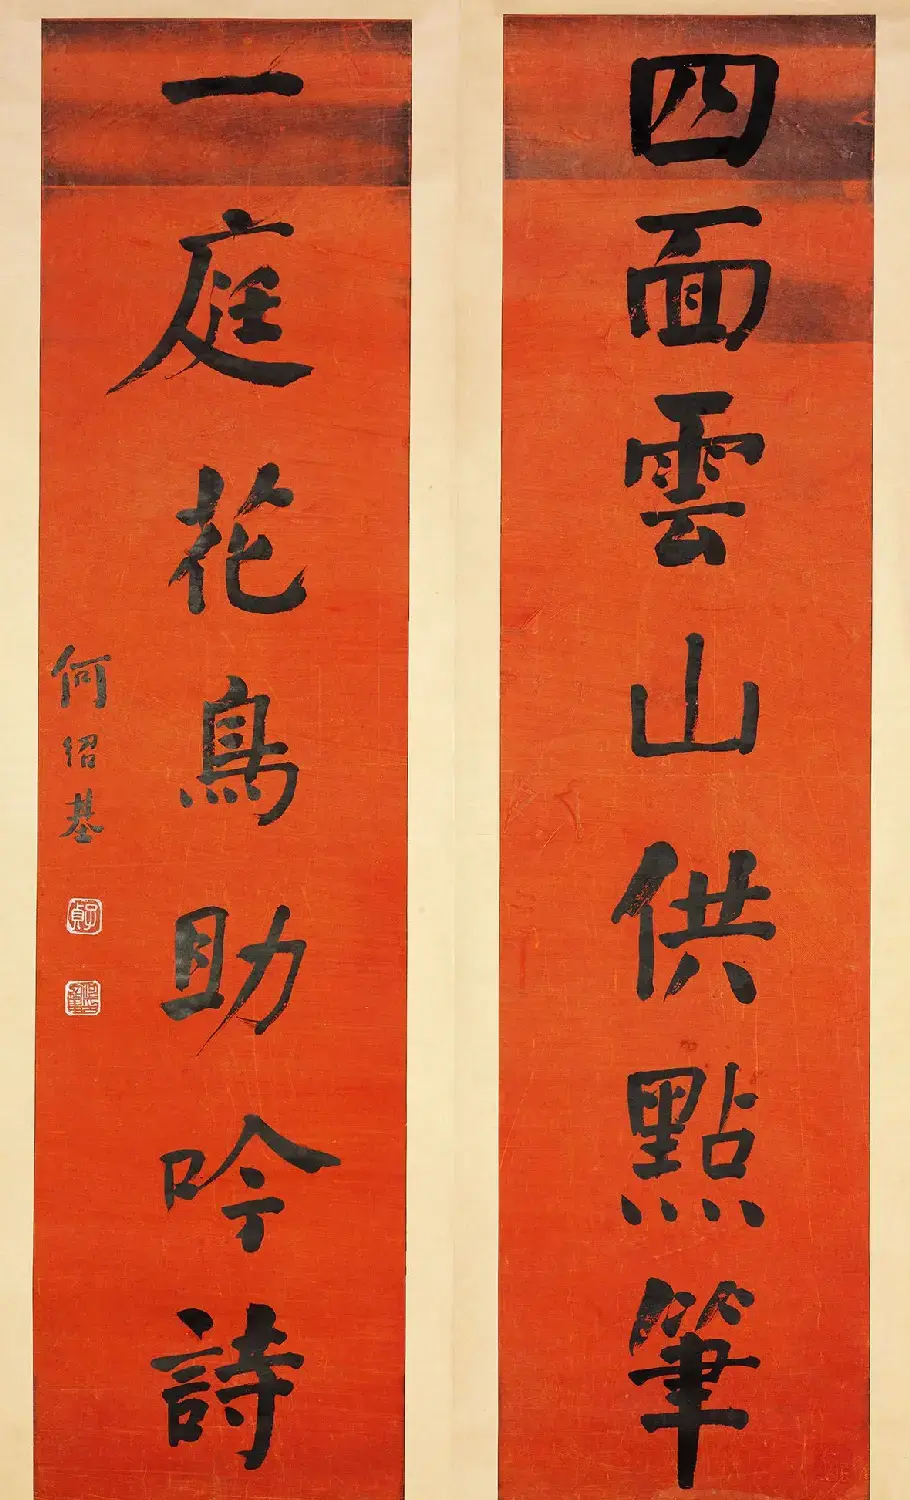 四面雲山供點筆
一庭花鳥助吟詩
何紹基
子貞